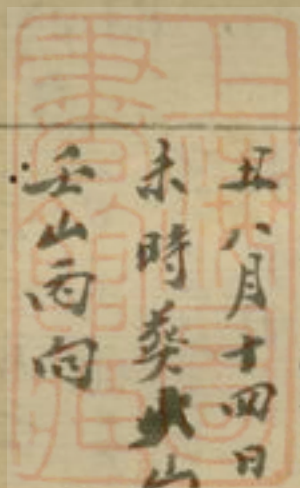 丑八月十四日
未時葬此山
壬山丙向